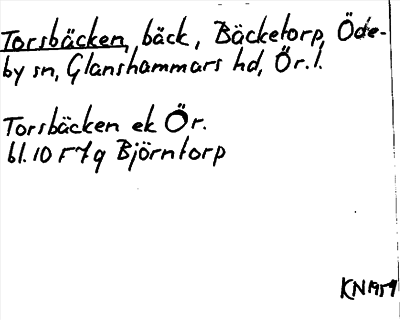 Torsbäcken, bäck, Bäcketorp, Öde-
by sn, Glanshammars hd, Ör.l.
Torsbäcken ek Ör.
bl. 10 F7g Björntorp
KN1959